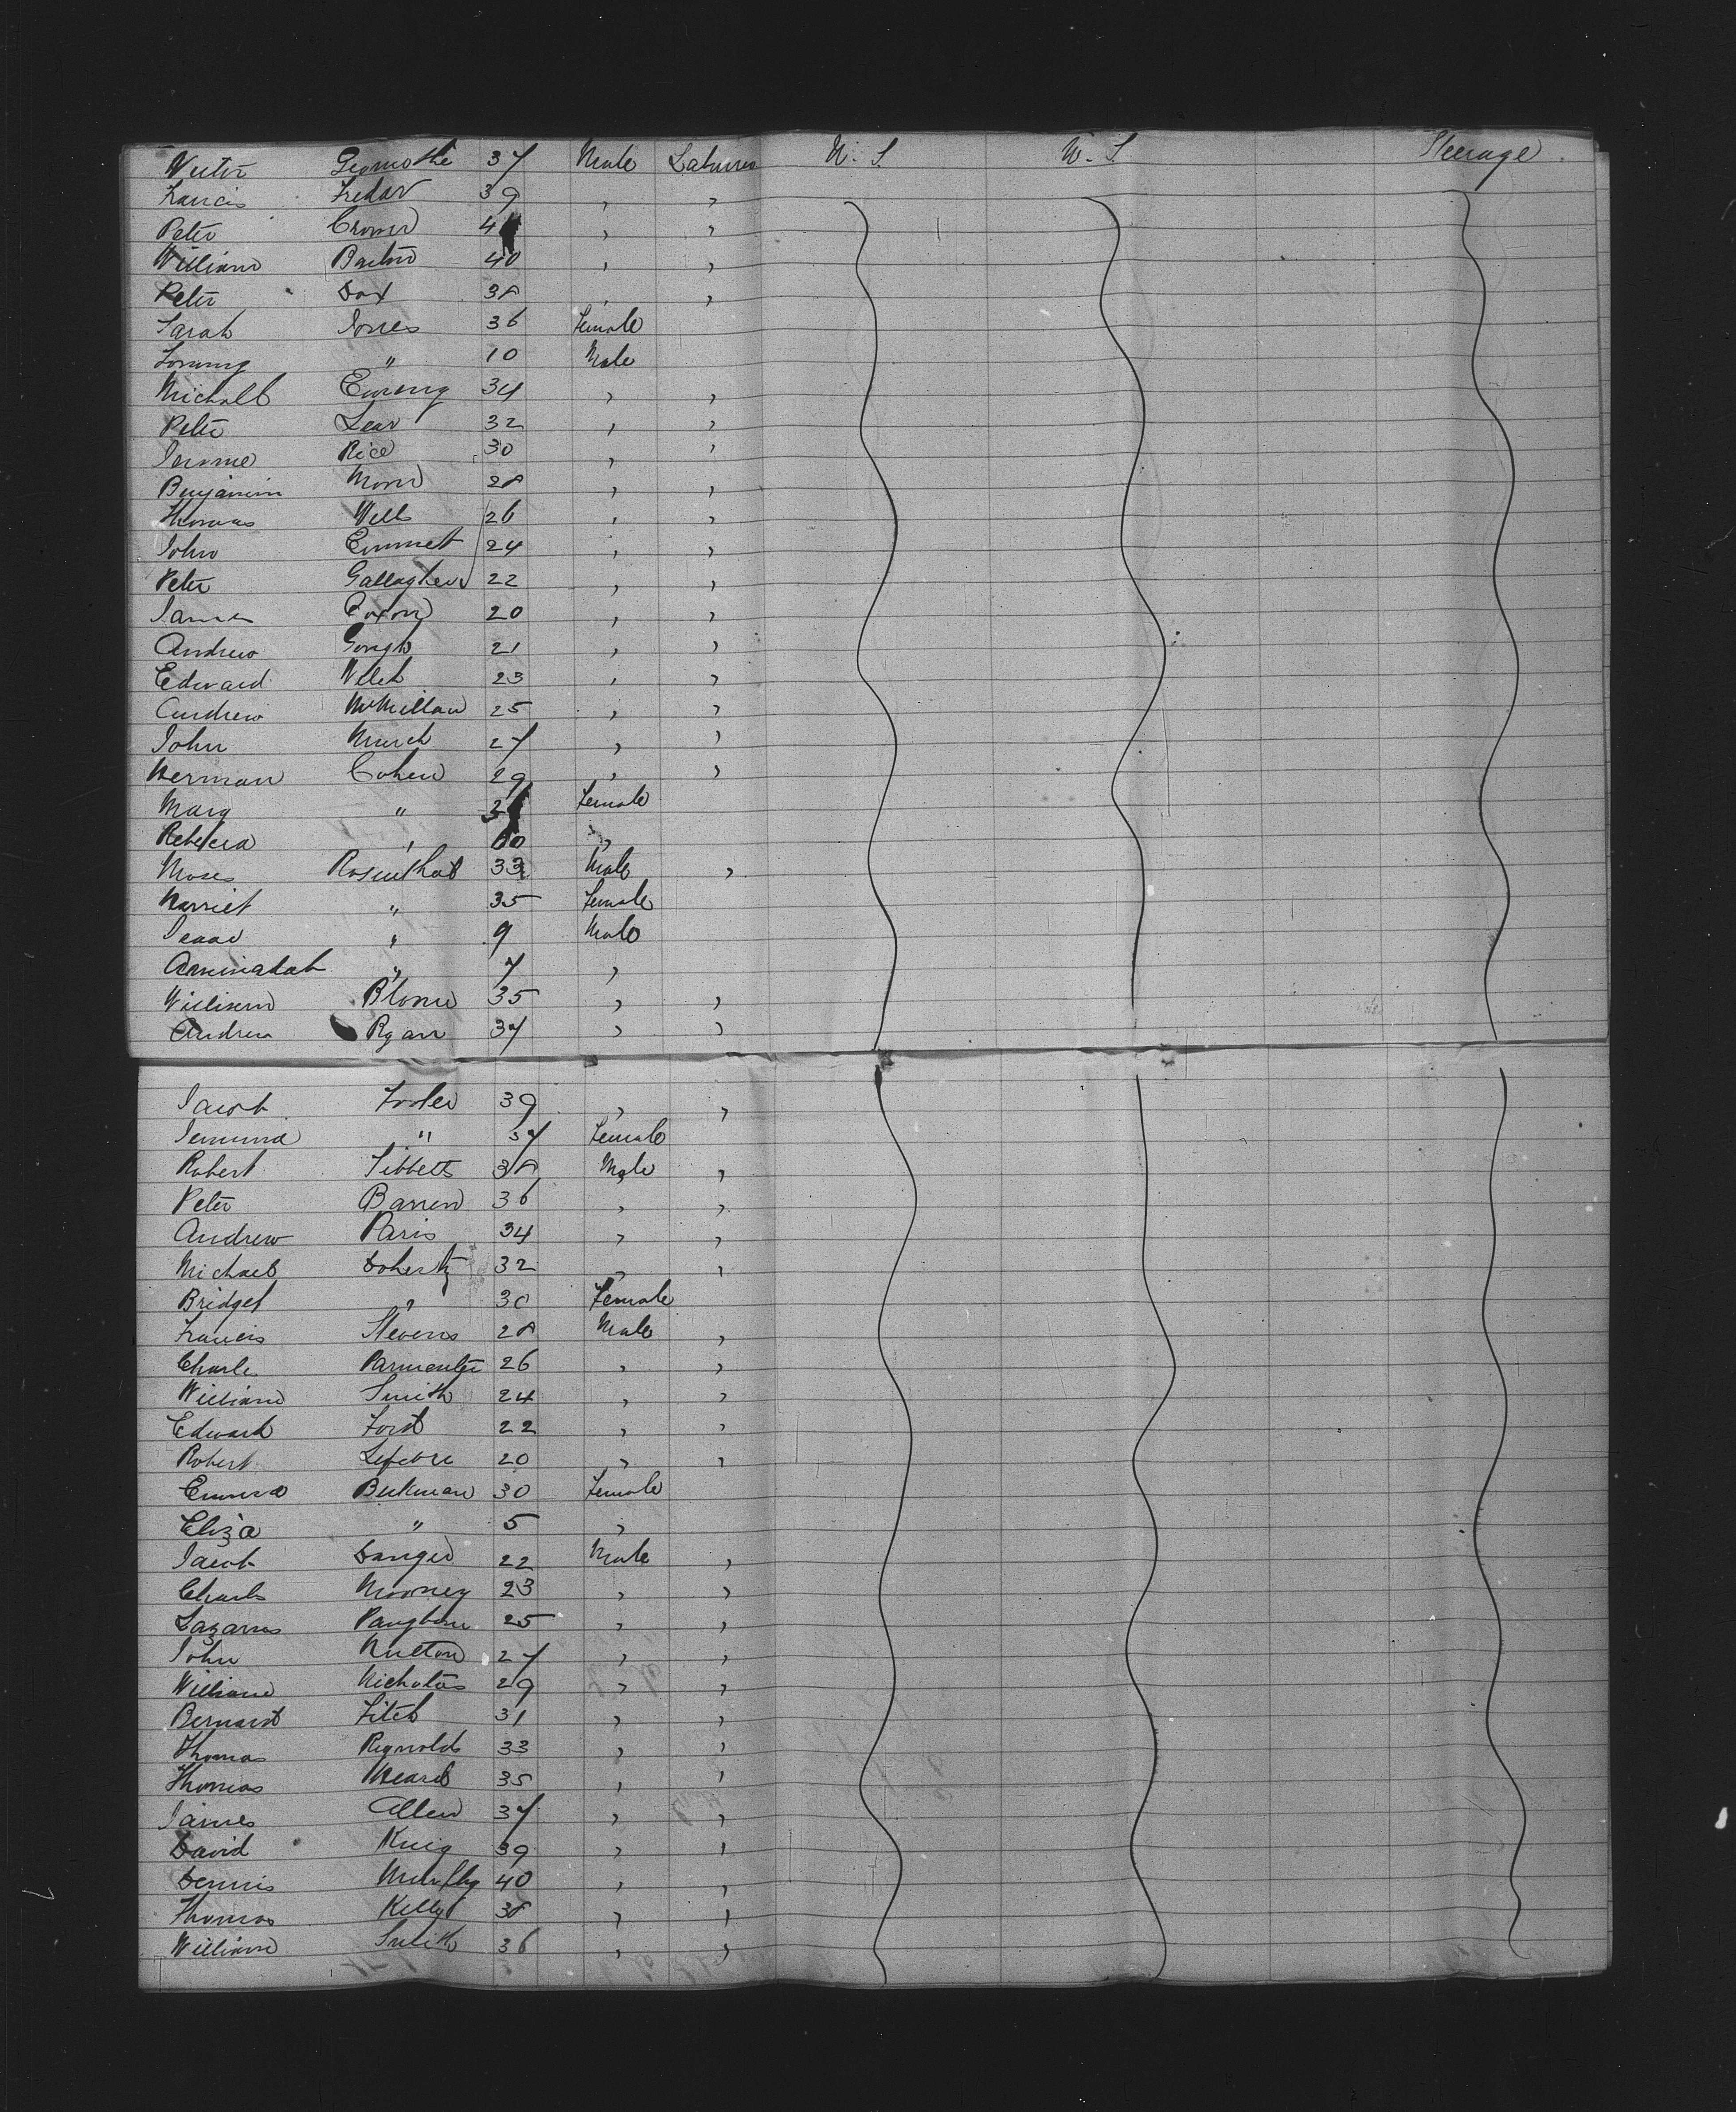 Gromothe 37 Male Laborer U. S. U. S. Steerage
Francis 39 , ,
Peter Croner 4 , ,
William Barton 40 , ,
Peter Dox 38 , ,
Sarah Jones 36 Female
" 10 Male
Michall Ewing 34 , ,
Peter Lear 32 , ,
Jerome Rice 30 , ,
Benjamin 28 , ,
Thomas Wells 26 , ,
John Emmet 24 , ,
Peter Gallagher 22 , ,
James Coxon 20 , ,
Andrew Gough 21 , ,
Edward Welch 23 , ,
Andrew McMillan 25 , ,
John Murch 27 , ,
Herman Cohen 29 , ,
Mary " Female
Rebecca " 60 "
Moses Rosenthal 33 Male ,
Harriet " 35 Female
Isaac " 9 Male
Aminadab " 7 ,
William Blome 35 , ,
Andrew Ryan 37 , ,
Jacob 39 , ,
Jemima " 37 Female
Robert Tibbetts 38 Male ,
Peter Barren 36 , ,
Andrew Paris 34 , ,
Michael Doherty 32 , ,
Bridget " 30 Female
Francis Stevens 28 Male ,
Charles Parmenter 26 , ,
William Smith 24 , ,
Edward Ford 22 , ,
Robert Lefevre 20 , ,
Emma Beekman 30 Female
Eliza " 5 ,
Jacob Danger 22 Male ,
Charles Mooney 23 , ,
Lazarus Pangburn 25 , ,
John Hutton 27 , ,
William Nicholas 29 , ,
Bernard Fitch 31 , ,
Thomas Reynolds 33 , ,
Thomas Heard 35 , ,
James Allen 37 , ,
David King 39 , ,
Dennis Murphy 40 , ,
Thomas Kelly 38 , ,
William Smith 36 , ,